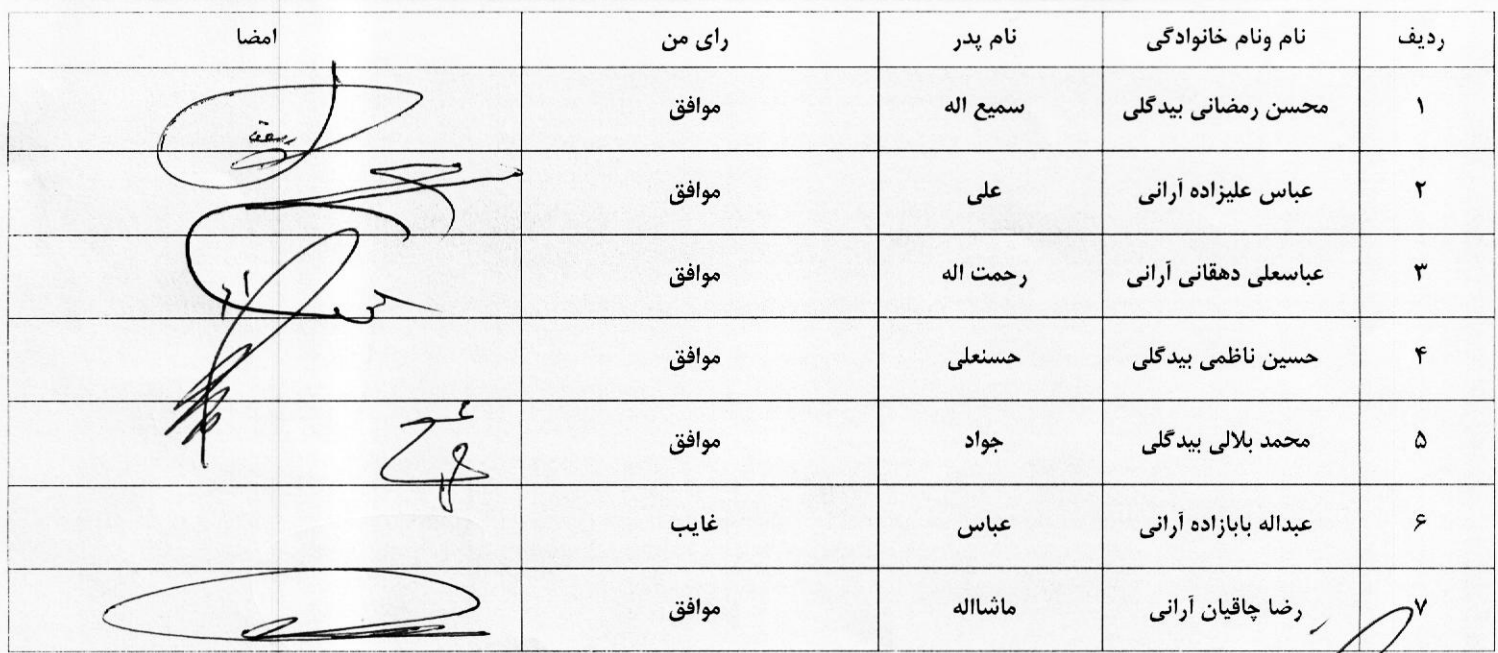 ردیف نام ونام خانوادگی نام پدر رای من امضا
۱ محسن رمضانی بیدگلی سمیع اله موافق
۲ عباس علیزاده آرانی علی موافق
۳ عباسعلی دهقانی آرانی رحمت اله موافق
۴ حسین ناظمی بیدگلی حسنعلی موافق
۵ محمد بلالی بیدگلی جواد موافق
۶ عبداله بابازاده آرانی عباس غایب
۷ رضا چاقیان آرانی ماشااله موافق